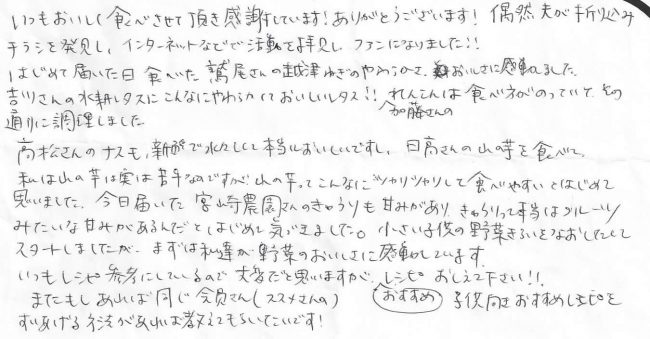 いつもおいしく食べさせて頂き感謝しています！ありがとうございます！ 偶然夫が折り込み
チラシを発見し、インターネットなどで活動を拝見し ファンになりました!!
はじめて届いた日 食べた 鷲尾さんの越津ねぎのやわらかさ、おいしさに感動しました。
吉川さんの水耕レタスにこんなにやわらかくておいしいレタス!! れんこんは食べ方がのっていて、その
加藤さんの
通りに調理しました
高松さんのナスも、新鮮で水々しくて本当においしいですし、日高さんの山の芋を食べて、
私は山の芋は実は苦手なのですが 山の芋ってこんなにシャリシャリして食べやすい とはじめて
思いました。今日届いた 宮崎農園さんのきゅうりも甘みがあり、きゅうりって本当はフルーツ
みたいな甘みがあるんだとはじめて気づきました。小さい子供の野菜きらいをなおしたくて
スタートしましたが、まずは私達が野菜のおいしさに感動しています。
いつもレシピ参考にしているので 大変だと思いますが、レシピ おしえて下さい!!
またもしあれば同じ会員さん(ススメさんの) おすすめ 子供向きおすすめレシピを
すいあげる 方法があれば教えてもらいたいです！